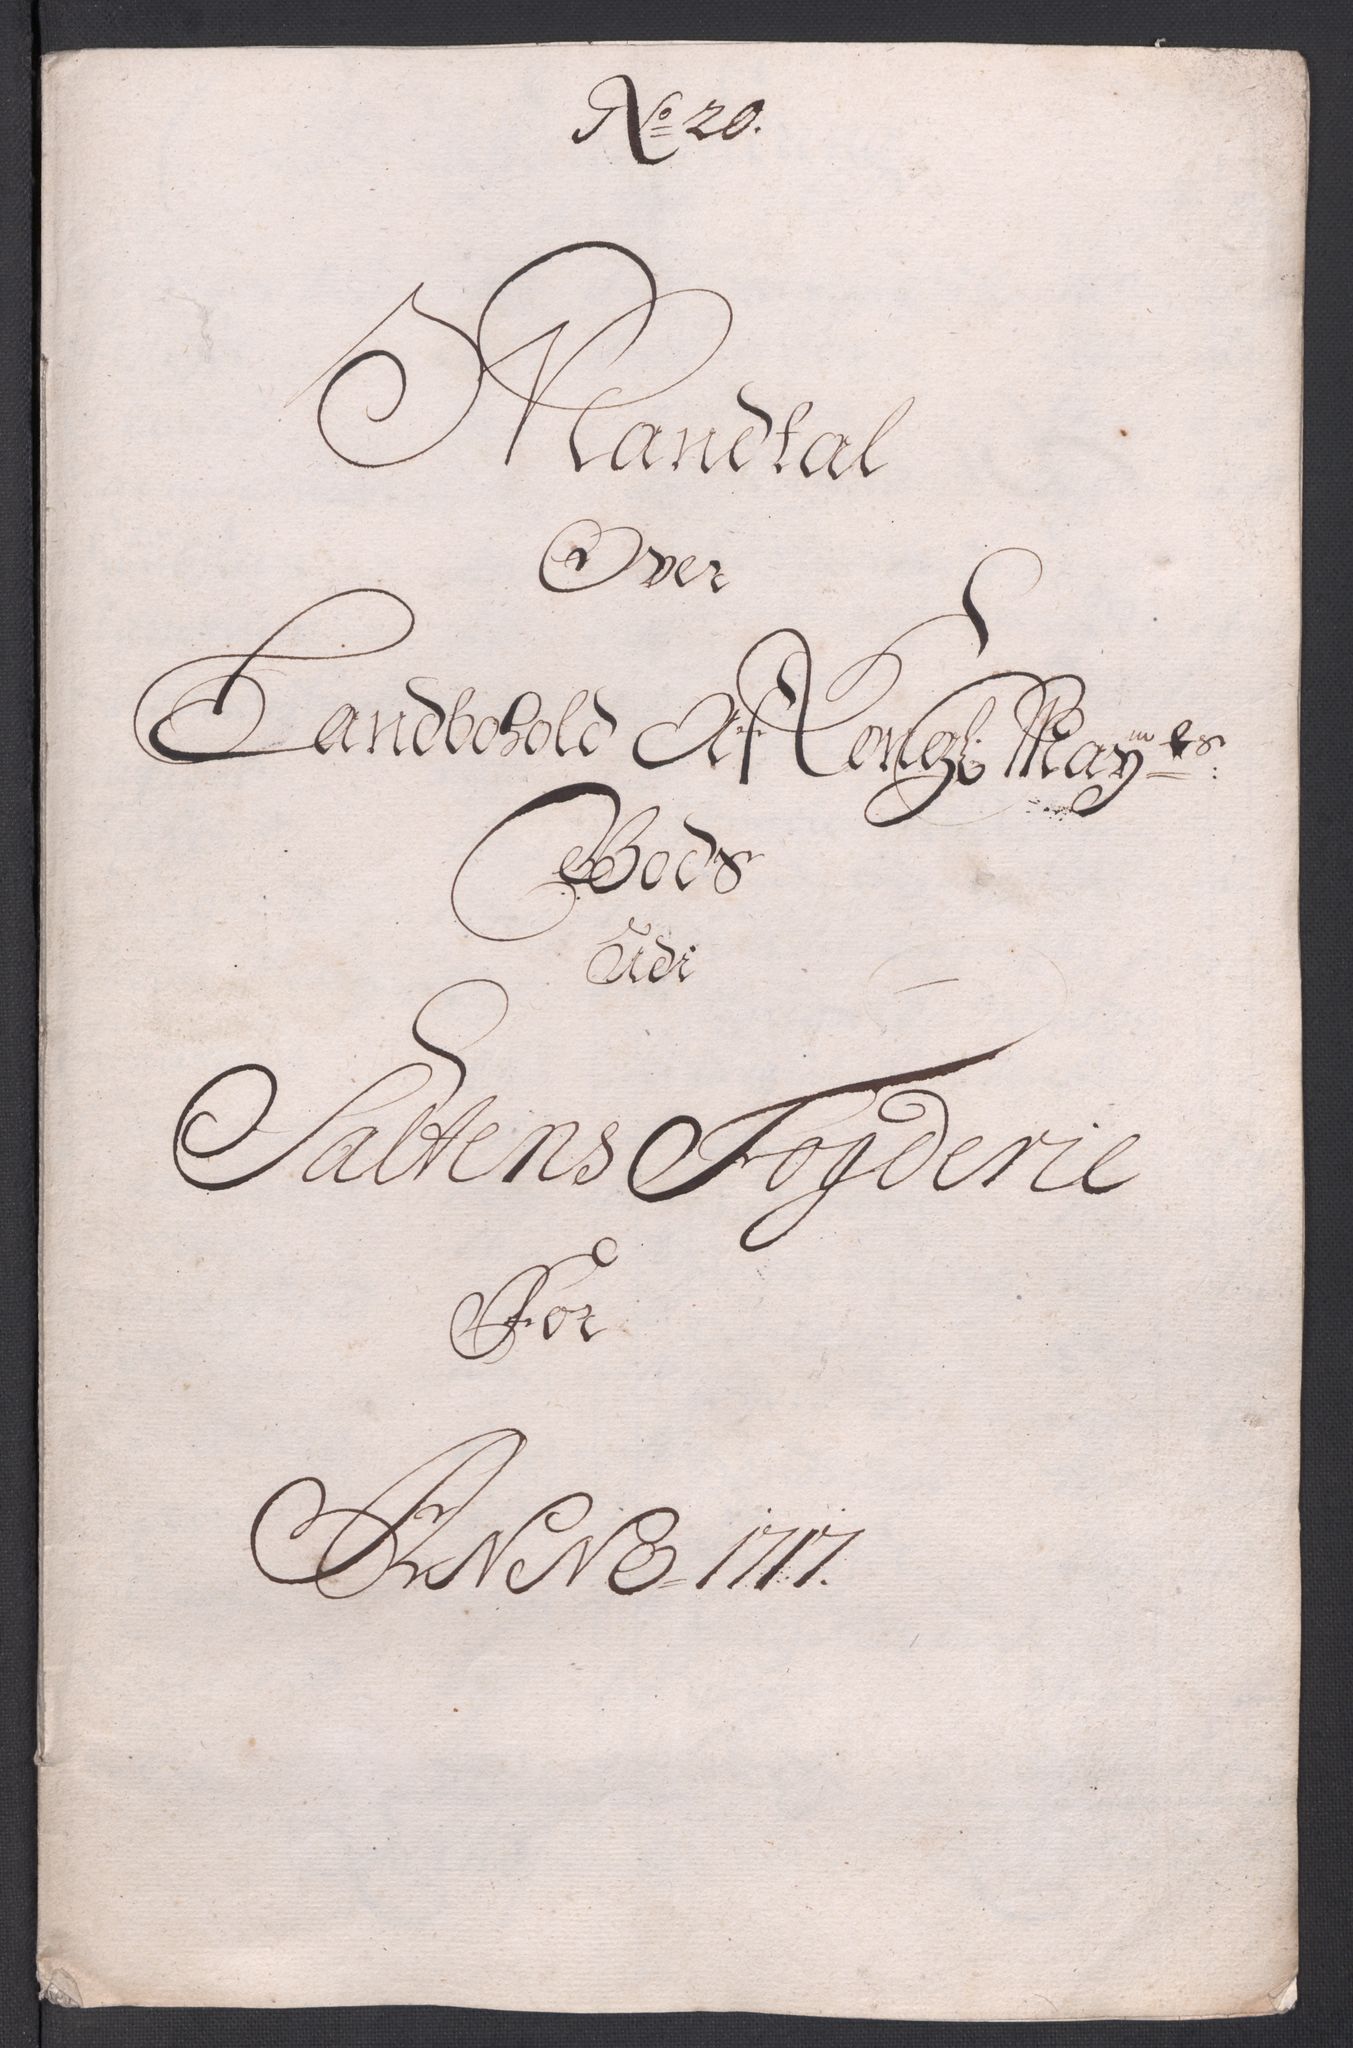 No 20.
Mandtal
Over
Landbohold Af Kongl: Mayts:
Gods
Udi
Saltens Fogderie
For
ANNO 1717.